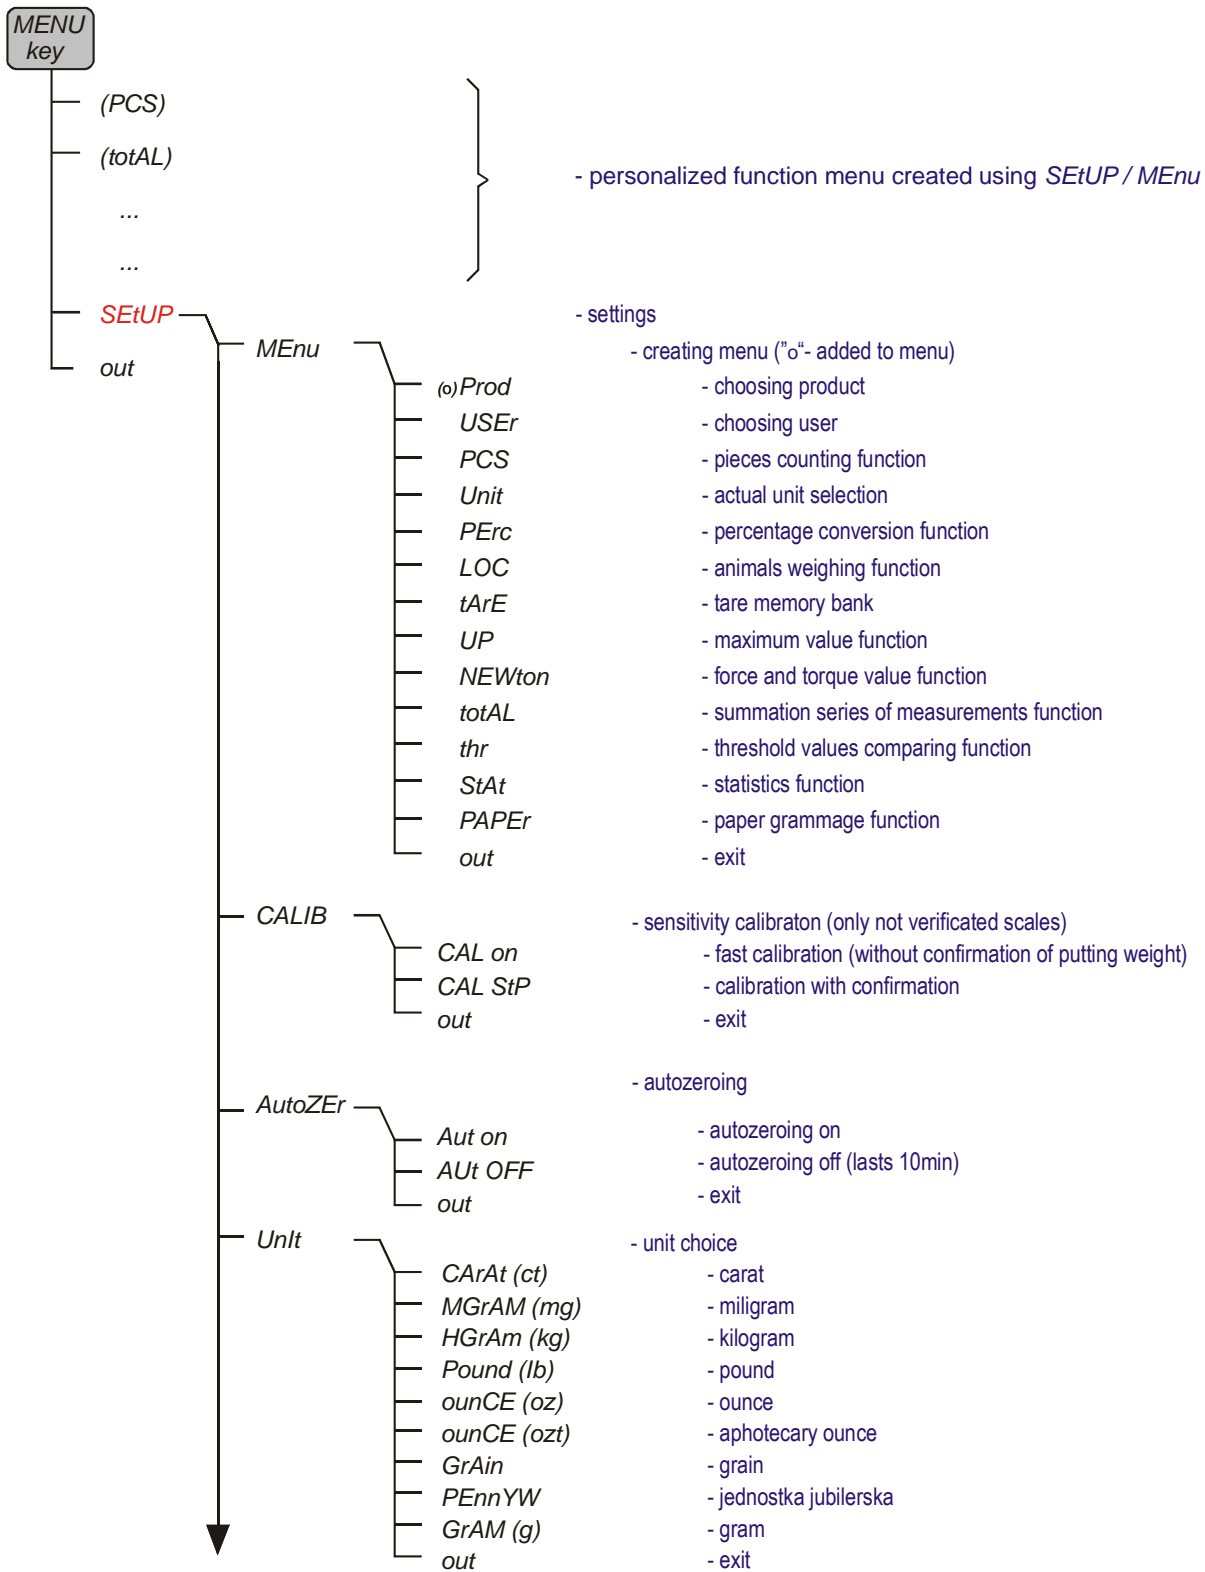 MENU
key
(PCS)
(totAL)
...
- personalized function menu created using SEtUP / MEnu
...
SEtUP - settings
MEnu - creating menu ("o"- added to menu)
out
(o) Prod - choosing product
USEr - choosing user
PCS - pieces counting function
Unit - actual unit selection
PErc - percentage conversion function
LOC - animals weighing function
tArE - tare memory bank
UP - maximum value function
NEWton - force and torque value function
totAL - summation series of measurements function
thr - threshold values comparing function
StAt - statistics function
PAPEr - paper grammage function
out - exit
CALIB - sensitivity calibraton (only not verificated scales)
CAL on - fast calibration (without confirmation of putting weight)
CAL StP - calibration with confirmation
out - exit
AutoZEr - autozeroing
Aut on - autozeroing on
AUt OFF - autozeroing off (lasts 10min)
out - exit
UnIt - unit choice
CArAt (ct) - carat
MGrAM (mg) - miligram
HGrAm (kg) - kilogram
Pound (lb) - pound
ounCE (oz) - ounce
ounCE (ozt) - aphotecary ounce
GrAin - grain
PEnnYW - jednostka jubilerska
GrAM (g) - gram
out - exit